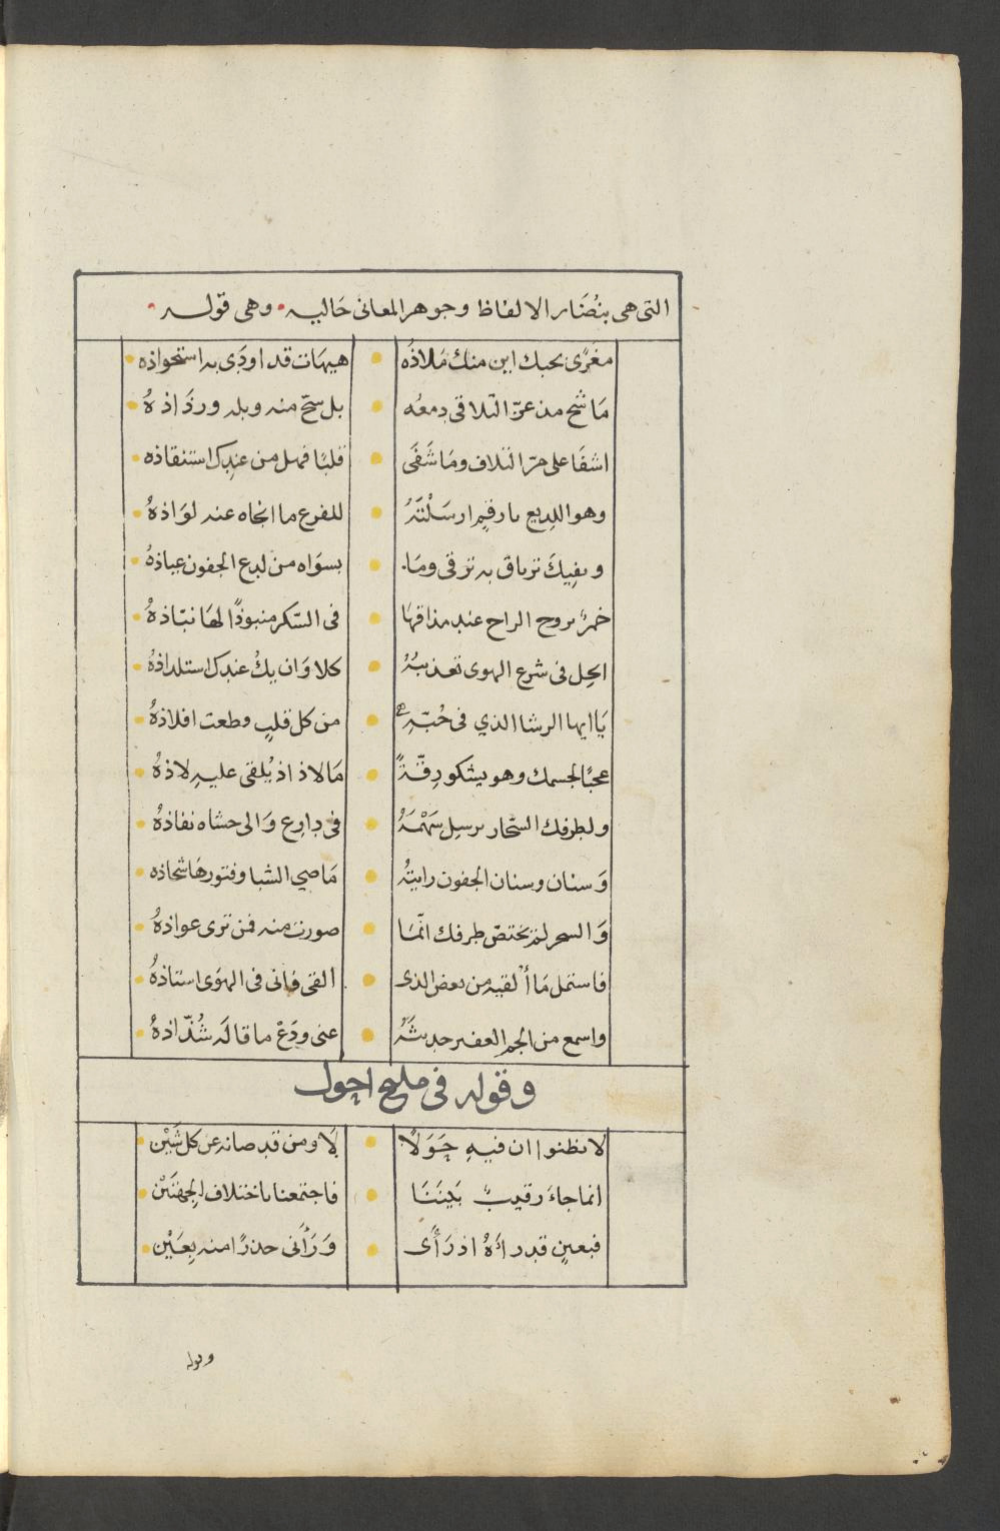 التي هى بنُضَار الالفاظ وجوهر المعانى حَاليه • وهى قوله •
مغرًى بحبك اين منك مَلاذُه • هيهَات قد اودَى به استحواذه •
مَا شح مذ عزّ التلاقى دمعُه • بل سَحّ منه وبله ورذَاذهُ •
اشفَا على حرّ التلاف ومَا شَفَى • قلبًا فهل من عندك استنقاذه •
وهو اللديغ بارقمٍ ارسَلْتَهُ • للفرع ما انجاه عنه لوَاذهُ •
وبفِيكَ ترياق به ترقى ومَا • بسوَاه من لدغ الجفون عياذهُ •
خمرٌ بروح الراح عند مذاقهَا • فى السّكر منبوذًا لهَا نبّاذهُ •
ايحل فى شرع الهوى تعذيبُهُ • كلا وَان يكُ عندك استلذاذهُ •
يَا ايها الرشا الذي فى حُبّهِ • من كل قلبٍ قطعت افلاذهُ •
عجبًا لجسمك وهو يشكو رِقّةً • مَا لاذ اذ يُلقى عليهِ لاذهُ •
ولطرفك السّحار يرسل سَهْمَهُ • فى دارع وَالى حشاه نفاذهُ •
وَسنان وسنان الجفون رايتُهُ • مَاضي الشبا وفتورهَا شحاذه •
وَالسحر لم يختصّ طرفك انّمَا • صورت منه فمن ترى عواذهُ •
فاستمل مَا أُلقيه من بعض الذى • القى فانى فى الهوَى استاذهُ •
واسمع من الجم الغفير حديثَهُ • عنى ودَعْ ما قالَه شُذّاذهُ •
وقوله فى مليح احول
لا تظنوا ان فيهِ حَوَلًا • لَا ومن قد صانه عن كل شَيْن
انما جاءَ رقيبٌ بَينَنَا • فاجتمعنا باختلاف الجهتَيْن •
فبعينٍ قد راَهُ اذ رَأَى • وَرَأنى حذرًا منه بِعَيْن •
وقوله